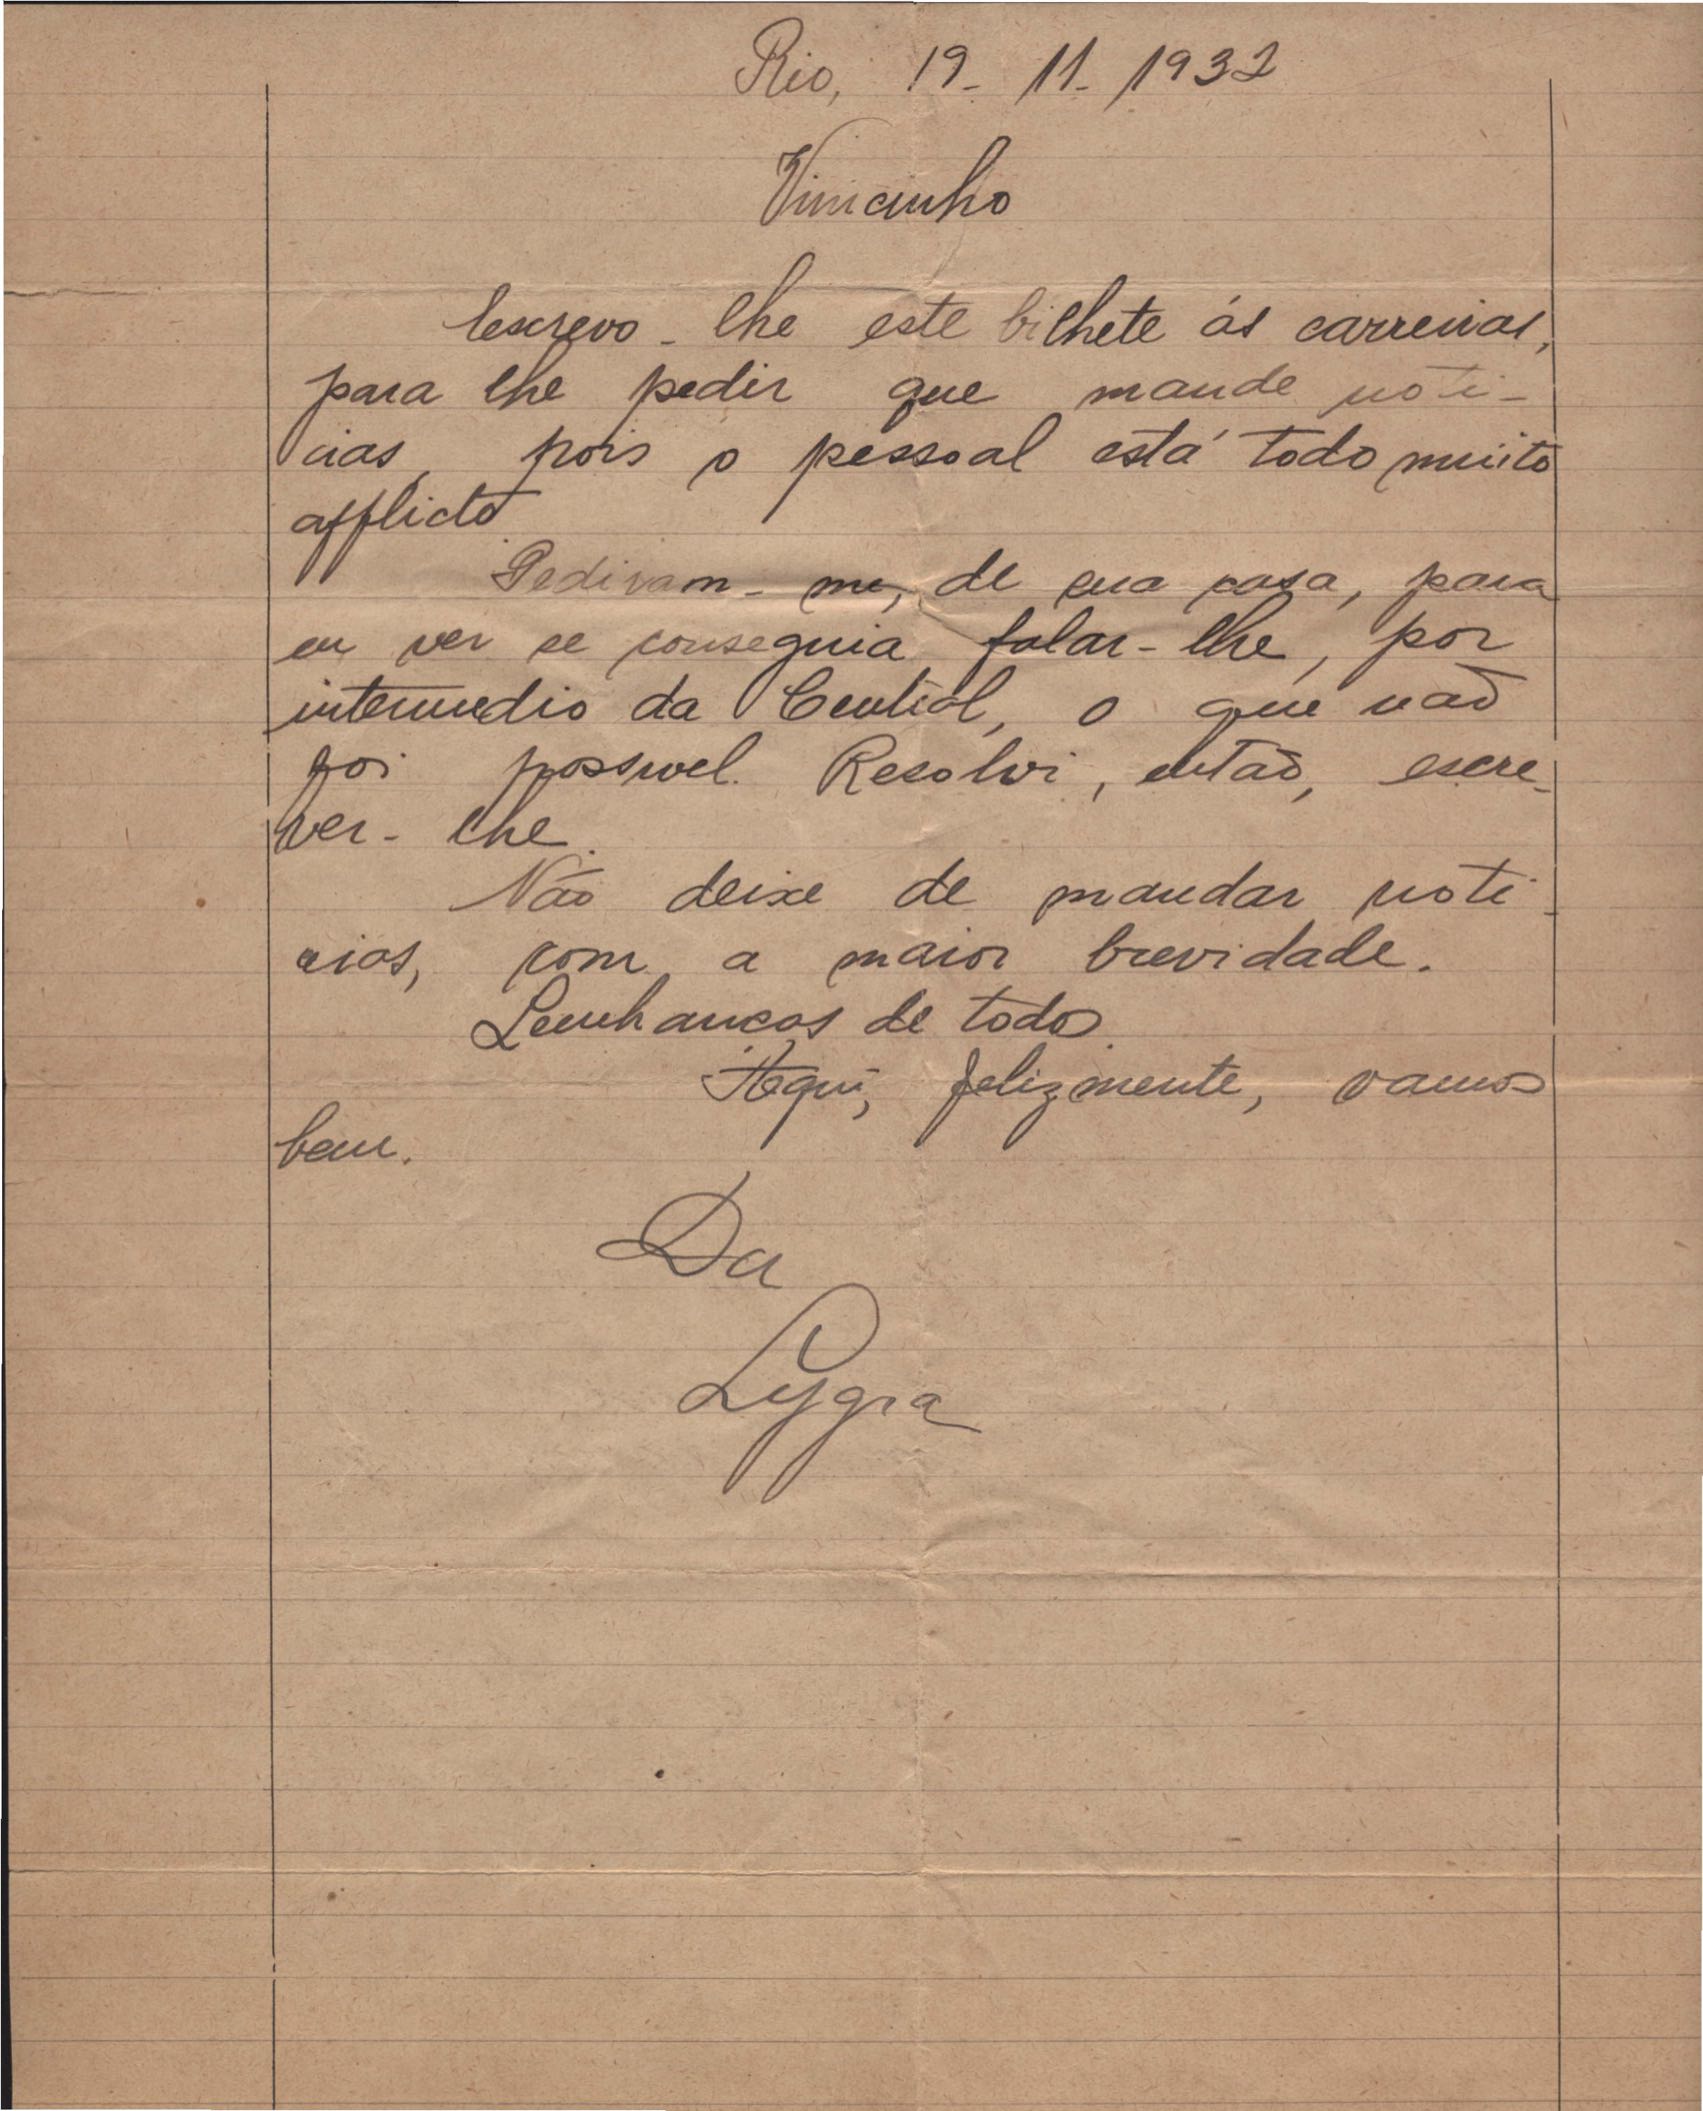 Rio, 19-11-1932
Vinicinho
Escrevo-lhe este bilhete ás carreiras,
para lhe pedir que mande noti-
cias, pois o pessoal está todo muito
afflicto.
Pediram-me, de sua casa, para
eu ver se conseguia falar-lhe, por
intermedio da Central, o que não
foi possivel. Resolvi, então, escre-
ver-lhe.
Não deixe de mandar noti-
cias, com a maior brevidade.
Lembranças de todos.
Aqui, felizmente, vamos
bem.
Da
Lygia